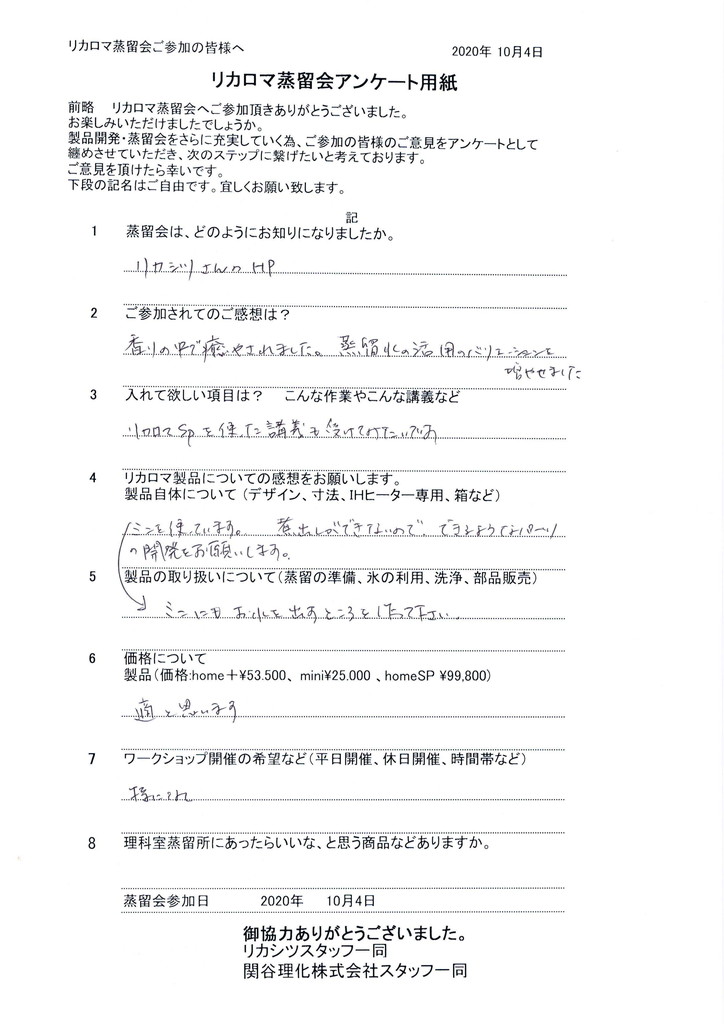 リカロマ蒸留会ご参加の皆様へ
2020年 10月4日
リカロマ蒸留会アンケート用紙
前略 リカロマ蒸留会へご参加頂きありがとうございました。
お楽しみいただけましたでしょうか。
製品開発・蒸留会をさらに充実していく為、ご参加の皆様のご意見をアンケートとして
纏めさせていただき、次のステップに繋げたいと考えております。
ご意見を頂けたら幸いです。
下段の記名はご自由です。宜しくお願い致します。
記
1 蒸留会は、どのようにお知りになりましたか。
リカシツさんのHP
2 ご参加されてのご感想は？
香りの中で癒やされました。蒸留水の活用のバリエーションを
増やせました
3 入れて欲しい項目は？ こんな作業やこんな講義など
リカロマSpを使った講義も受けてみたいです
4 リカロマ製品についての感想をお願いします。
製品自体について（デザイン、寸法、IHヒーター専用、箱など）
ミニを使っています。 煮出しができないので、できるようなパーツ
の開発をお願いします。
5 製品の取り扱いについて（蒸留の準備、氷の利用、洗浄、部品販売）
ミニにもお水を出すところを作って下さい。
6 価格について
製品（価格:home＋¥53.500、 mini¥25.000 、homeSP ¥99,800）
適と思います
7 ワークショップ開催の希望など（平日開催、休日開催、時間帯など）
特になし
8 理科室蒸留所にあったらいいな、と思う商品などありますか。
蒸留会参加日 2020年 10月4日
御協力ありがとうございました。
リカシツスタッフ一同
関谷理化株式会社スタッフ一同